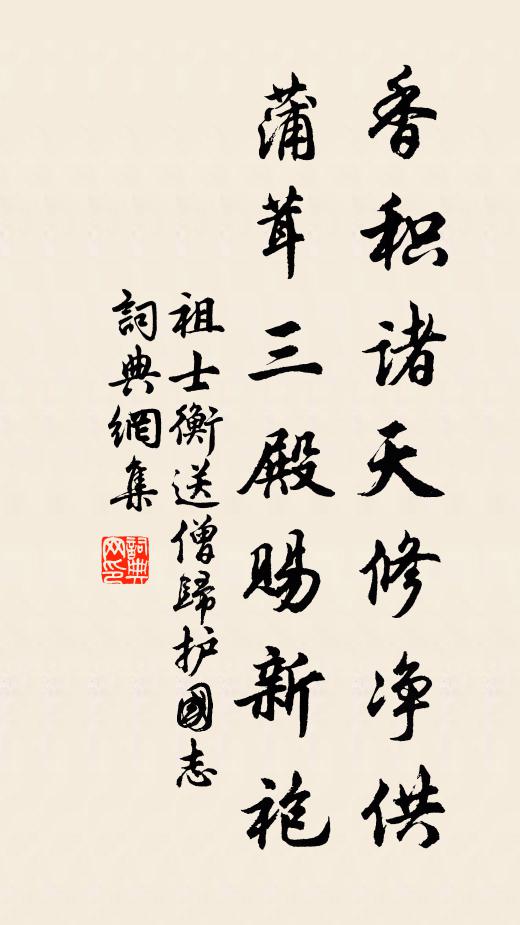 香积诸天修净供
蒲茸三殿赐新袍
祖士衡送僧歸护國志
詞典網集
詞典網印